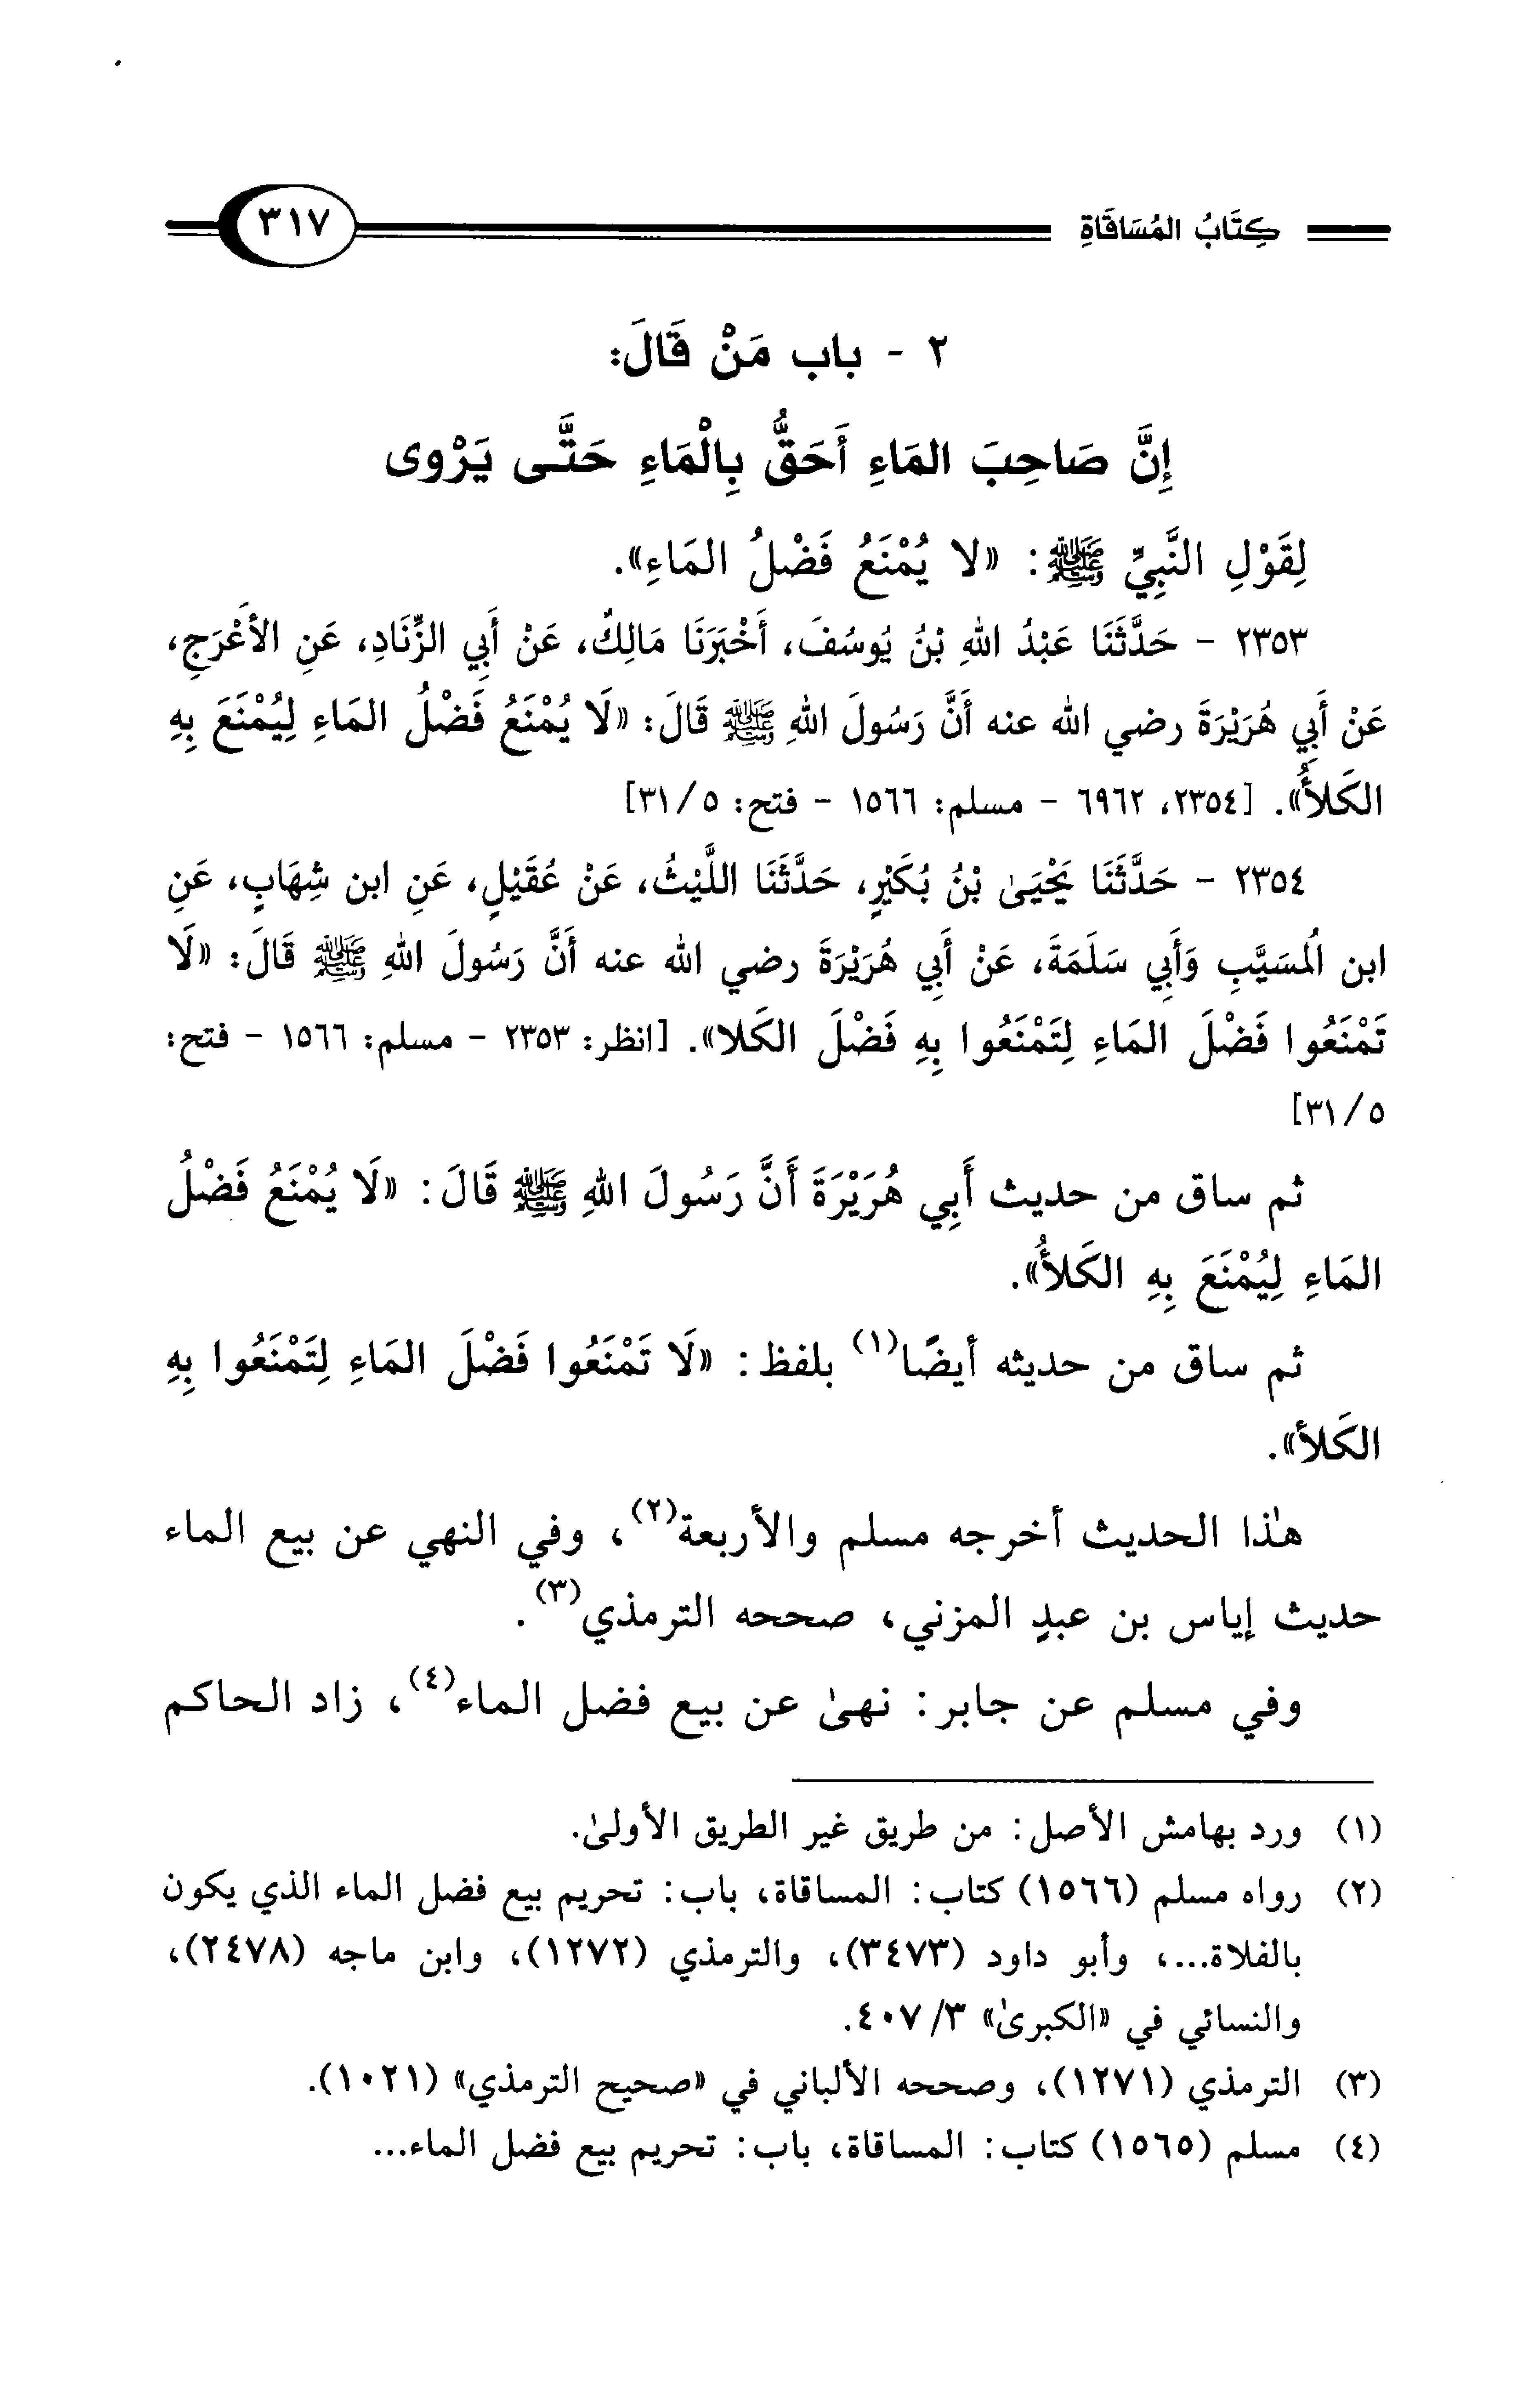 كِتَابُ المُسَاقَاةِ
٣١٧
٢ - باب مَنْ قَالَ:
إِنَّ صَاحِبَ المَاءِ أَحَقُّ بِالْمَاءِ حَتَّى يَرْوى
لِقَوْلِ النَّبِيِّ ﷺ: «لا يُمْنَعُ فَضْلُ المَاءِ».
٢٣٥٣ - حَدَّثَنَا عَبْدُ اللهِ بْنُ يُوسُفَ، أَخْبَرَنَا مَالِكٌ، عَنْ أَبِي الزِّنَادِ، عَنِ الأَعْرَجِ،
عَنْ أَبِي هُرَيْرَةَ رضي الله عنه أَنَّ رَسُولَ اللهِ ﷺ قَالَ: «لَا يُمْنَعُ فَضْلُ المَاءِ لِيُمْنَعَ بِهِ
الكَلأُ». [٢٣٥٤، ٦٩٦٢ - مسلم: ١٥٦٦ - فتح: ٥/ ٣١]
٢٣٥٤ - حَدَّثَنَا يَحْيَىٰ بْنُ بُكَيْرٍ، حَدَّثَنَا اللَّيْثُ، عَنْ عُقَيْلٍ، عَنِ ابن شِهَابٍ، عَنِ
ابن المُسَيَّبِ وَأَبِي سَلَمَةَ، عَنْ أَبِي هُرَيْرَةَ رضي الله عنه أَنَّ رَسُولَ اللهِ ﷺ قَالَ: «لَا
تَمْنَعُوا فَضْلَ المَاءِ لِتَمْنَعُوا بِهِ فَضْلَ الكَلا». [انظر: ٢٣٥٣ - مسلم: ١٥٦٦ - فتح:
٥/ ٣١]
ثم ساق من حديث أَبِي هُرَيْرَةَ أَنَّ رَسُولَ اللهِ ﷺ قَالَ: «لَا يُمْنَعُ فَضْلُ
المَاءِ لِيُمْنَعَ بِهِ الكَلأُ».
ثم ساق من حديثه أيضًا(١) بلفظ: «لَا تَمْنَعُوا فَضْلَ المَاءِ لِتَمْنَعُوا بِهِ
الكَلأ».
هٰذا الحديث أخرجه مسلم والأربعة(٢)، وفي النهي عن بيع الماء
حديث إياس بن عبدٍ المزني، صححه الترمذي(٣).
وفي مسلم عن جابر: نهىٰ عن بيع فضل الماء(٤)، زاد الحاكم
(١) ورد بهامش الأصل: من طريق غير الطريق الأولىٰ.
(٢) رواه مسلم (١٥٦٦) كتاب: المساقاة، باب: تحريم بيع فضل الماء الذي يكون
بالفلاة...، وأبو داود (٣٤٧٣)، والترمذي (١٢٧٢)، وابن ماجه (٢٤٧٨)،
والنسائي في «الكبرىٰ» ٣/ ٤٠٧.
(٣) الترمذي (١٢٧١)، وصححه الألباني في «صحيح الترمذي» (١٠٢١).
(٤) مسلم (١٥٦٥) كتاب: المساقاة، باب: تحريم بيع فضل الماء...